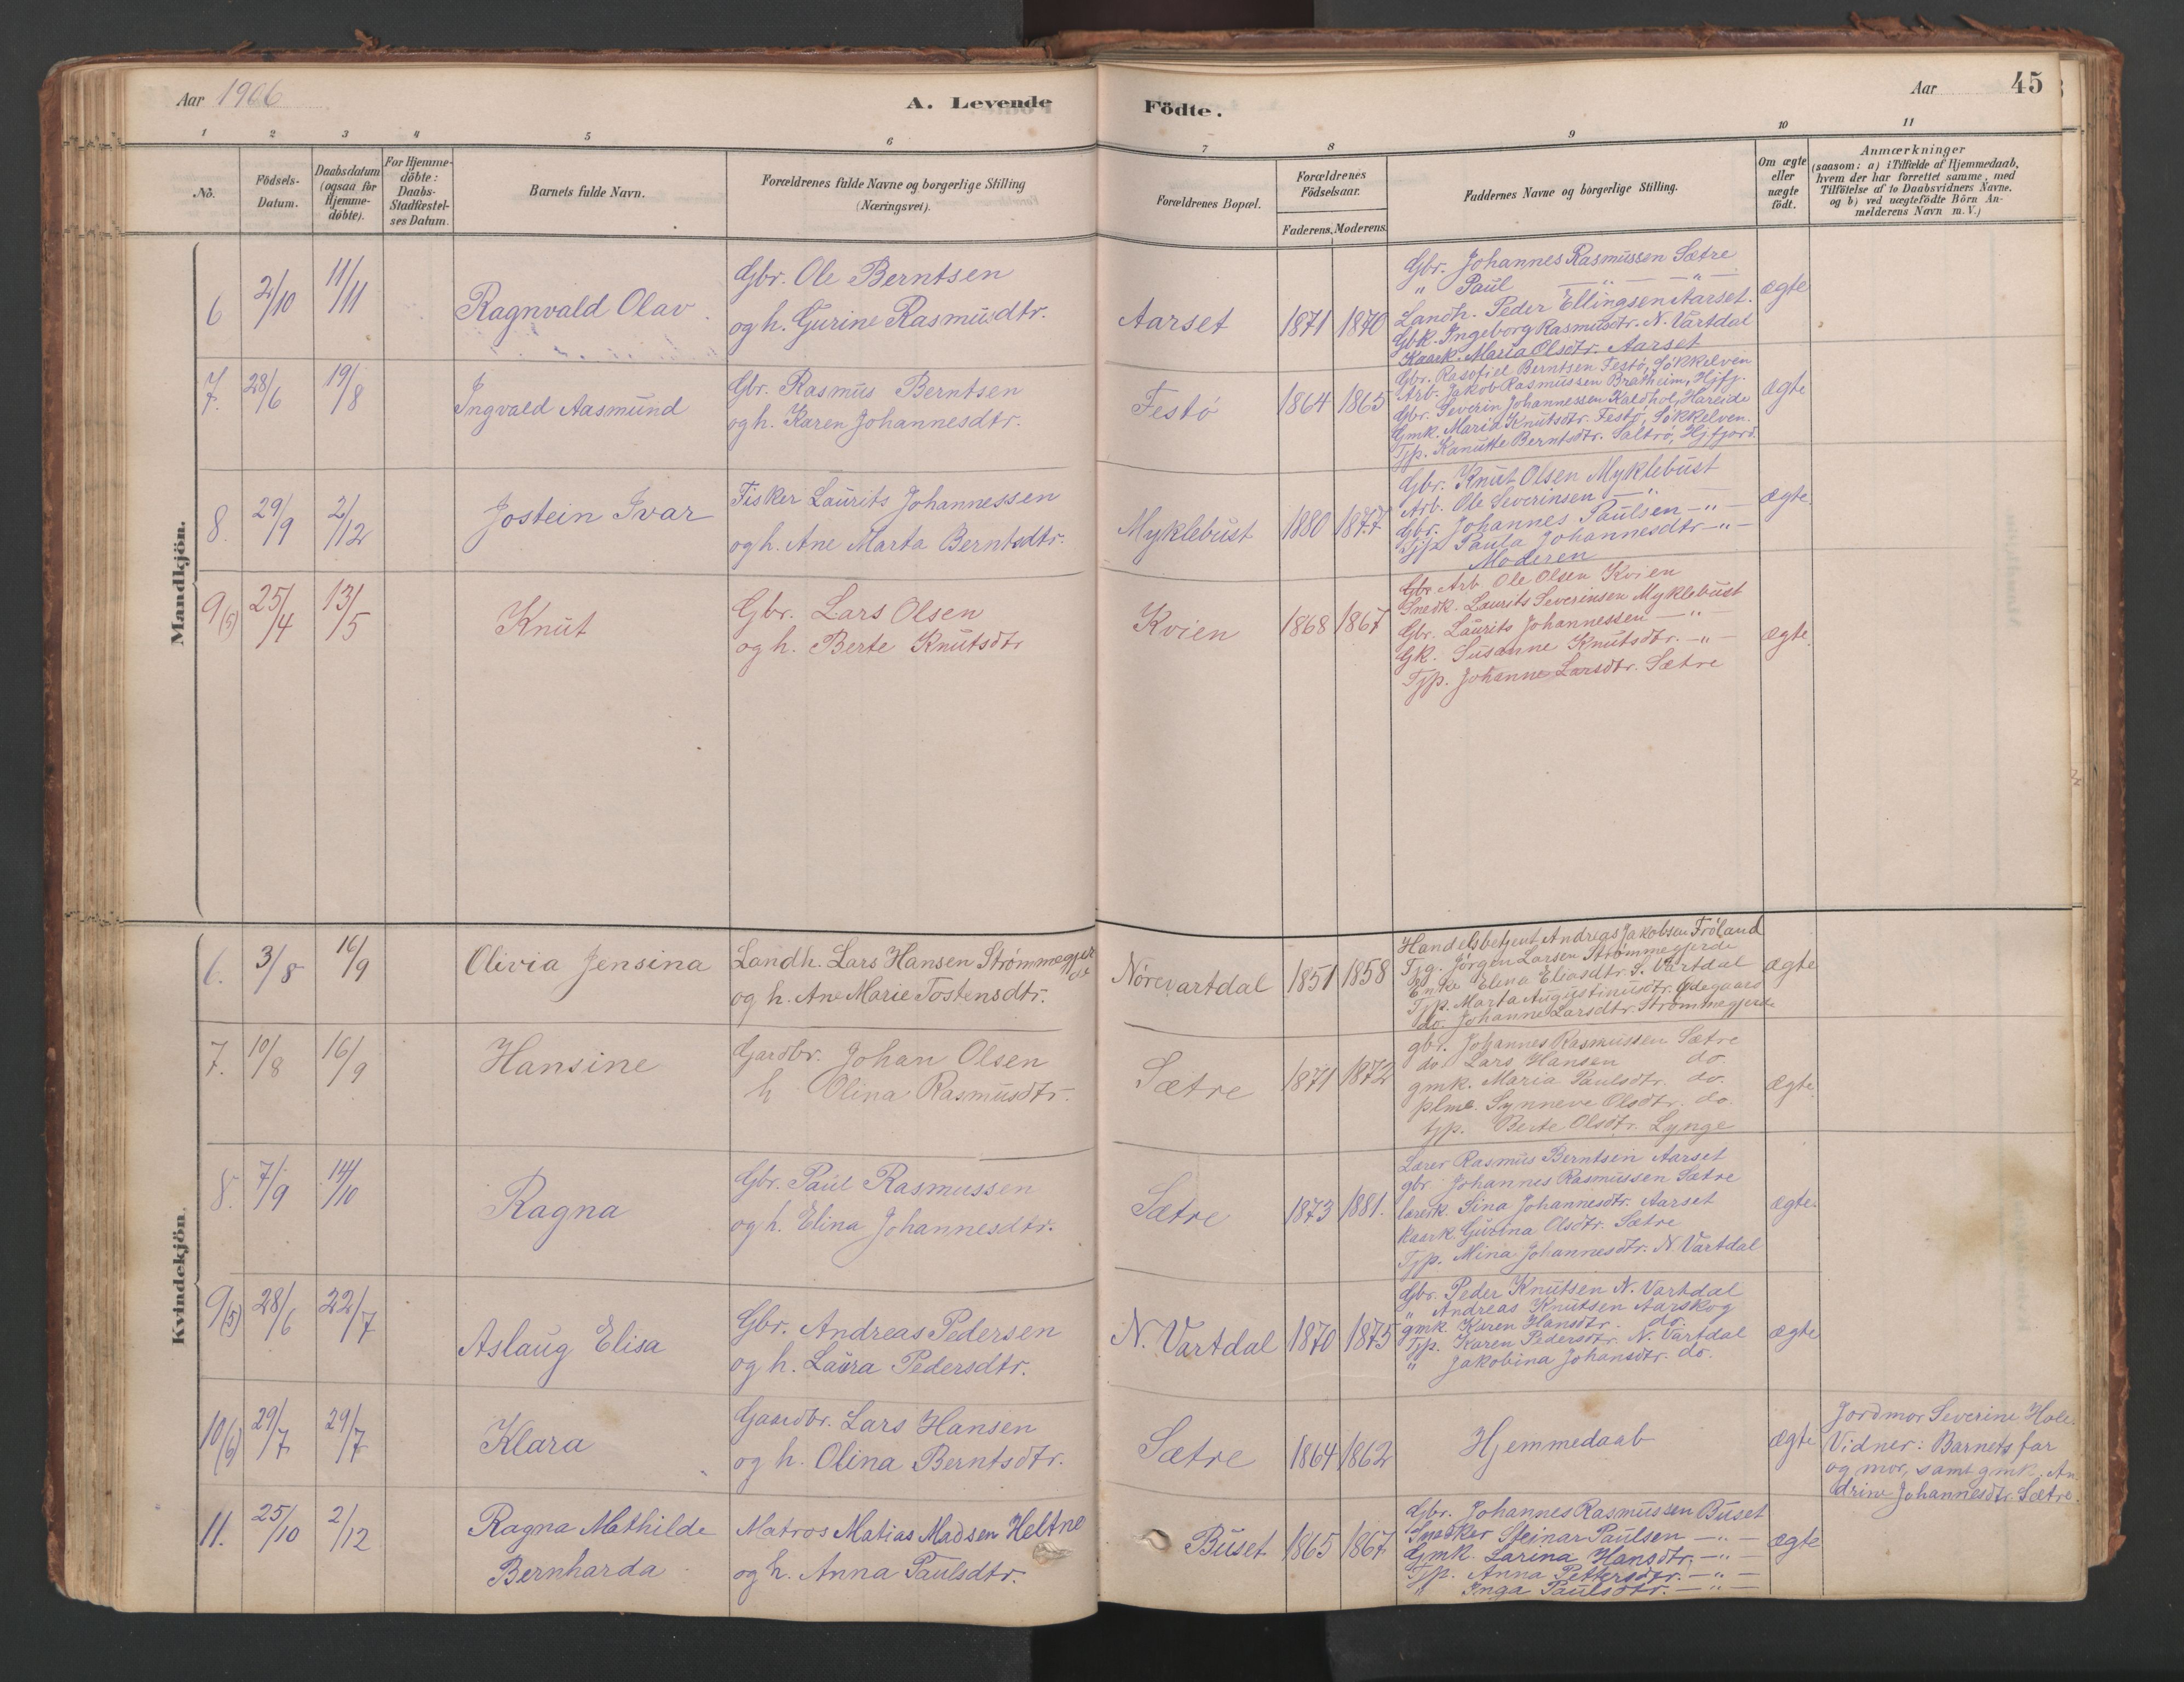 Aar 1906
A. Levende
Födte.
Aar
45
1 2 3 4 5 6 7 8 9 10 11
No.
Födsels-
Datum.
Daabsdatum
(ogsaa for
Hjemme-
döbte).
For Hjemme-
döbte:
Daabs-
Stadfæstel-
ses Datum.
Barnets fulde Navn.
Forældrenes fulde Navne og borgerlige Stilling
(Næringsvei).
Forældrenes Bopæl.
Forældrenes
Födselsaar.
Faderens. Moderens.
Faddernes Navne og borgerlige Stilling.
Om ægte
eller
uægte
födt.
Anmærkninger
(saasom: a) i Tilfælde af Hjemmedaab,
hvem der har forrettet samme, med
Tilföielse af to Daabsvidners Navne.
og b) ved uægtefödte Börn An-
melderens Navn m. V.)
Mandkjön.
6 2/10 11/11
Ragnvald Olav
Gbr. Ole Berntsen
og h. Gurine Rasmusdtr.
Aarset 1871 1870
Gbr. Johannes Rasmussen Sætre
" Paul — " — " —
Landh. Peder Ellingsen Aarset.
Gbk. Ingeborg Rasmusdtr. N. Vartdal
Kaark. Maria Olsdtr. Aarset
ægte
7. 28/6 19/8
Ingvald Aasmund
Gbr. Rasmus Berntsen
og h. Karen Johannesdtr.
Festö 1864 1865
Gbr. Rasofiel Berntsen Festö, Sökkelven
Arb. Jakob Rasmussen Brathum, Hjfj.
Gbr. Severin Johannessen Kaldhol, Hareide
Gmk. Maria Knutsdtr. Festö, Sökkelven.
Tjp. Kanutte Berntsdtr. Saltrö, Hjfjord.
ægte
8. 29/9 2/12
Jostein Ivar
Fisker Laurits Johannessen
og h. Ane Marta Berntsdtr.
Myklebust 1880 1877
Gbr. Knut Olsen Myklebust
Arb. Ole Severinsen — " —
Gbr. Johannes Paulsen — " —
Tjp. Paula Johannesdtr — " —
Moderen
ægte.
9(5) 25/4 13/5
Knut
Gbr. Lars Olsen
og h. Berte Knutsdtr
Kvien 1868 1867
Gbr Arb Ole Olsen Kvien
Snedk. Laurits Severinsen Myklebust
Gbr. Laurits Johannessen — " —
Gk. Susanne Knutsdtr. — " —
Tjp. Johanne Larsdtr. Sætre
ægte.
Kvindekjön.
6. 3/8 16/9
Olivia Jensina
Landh. Lars Hansen Strømmegjer
de
og h. Ane Marie Tostensdtr.
Nörevartdal 1851 1858
Handelsbetjent Andreas Jakobsen Fröland
Tjg. Jörgen Larsen Strømmegjerde
Enke Elena Eliasdtr. S. Vartdal
Tjp. Marta Augustinusdtr. Ødegaard
do. Johanne Larsdtr. Strømmegjerde
ægte
7. 10/8 16/9
Hansine
Gardbr. Johan Olsen
h Olina Rasmusdtr.
Sætre 1871 1872
gbr. Johannes Rasmussen Sætre
do Lars Hansen do.
gmk. Maria Paulsdtr. do.
plmk. Synneve Olsdtr. do.
tjp. Berte Olsdtr. Lynge
ægte.
8. 7/9 14/10
Ragna
Gbr. Paul Rasmussen
og h. Elina Johannesdtr.
Sætre 1873 1881.
Lærer Rasmus Berntsen Aarset
gbr. Johannes Rasmussen Sætre
læresk. Sina Johannesdtr. Aarset
Kaark. Gurina Olsdtr. Sætre
Tjp. Mina Johannesdtr. N. Vartdal
ægte.
9(5) 28/6 22/7
Aslaug Elisa
Gbr. Andreas Pedersen
og h. Laura Pedersdtr.
N. Vartdal 1870 1875
Gbr. Peder Knutsen N. Vartdal
" Andreas Knutsen Aarskog
gmk. Karen Hansdtr. do.
Tjp. Karen Pedersdtr. N. Vartdal
" Jakobina Johansdtr. do.
ægte
10(6) 29/7 29/7
Klara
Gaardbr. Lars Hansen
og h. Olina Berntsdtr.
Sætre 1864 1862
Hjemmedaab
ægte
Jordmor Severine Hole.
Vidner: Barnets far
og mor, samt gmk. An
drine Johannesdtr. Sætre.
11. 25/10 2/12
Ragna Mathilde
Bernharda
Matros Matias Madsen Heltne
og h. Anna Paulsdtr.
Buset 1865 1867
Gbr. Johannes Rasmussen Buset
Snedker Steinar Paulsen — " —
Gmk. Larina Hansdtr. — " —
Tjp. Anna Pettersdtr. — " —
" Inga Paulsdtr. — " —
ægte